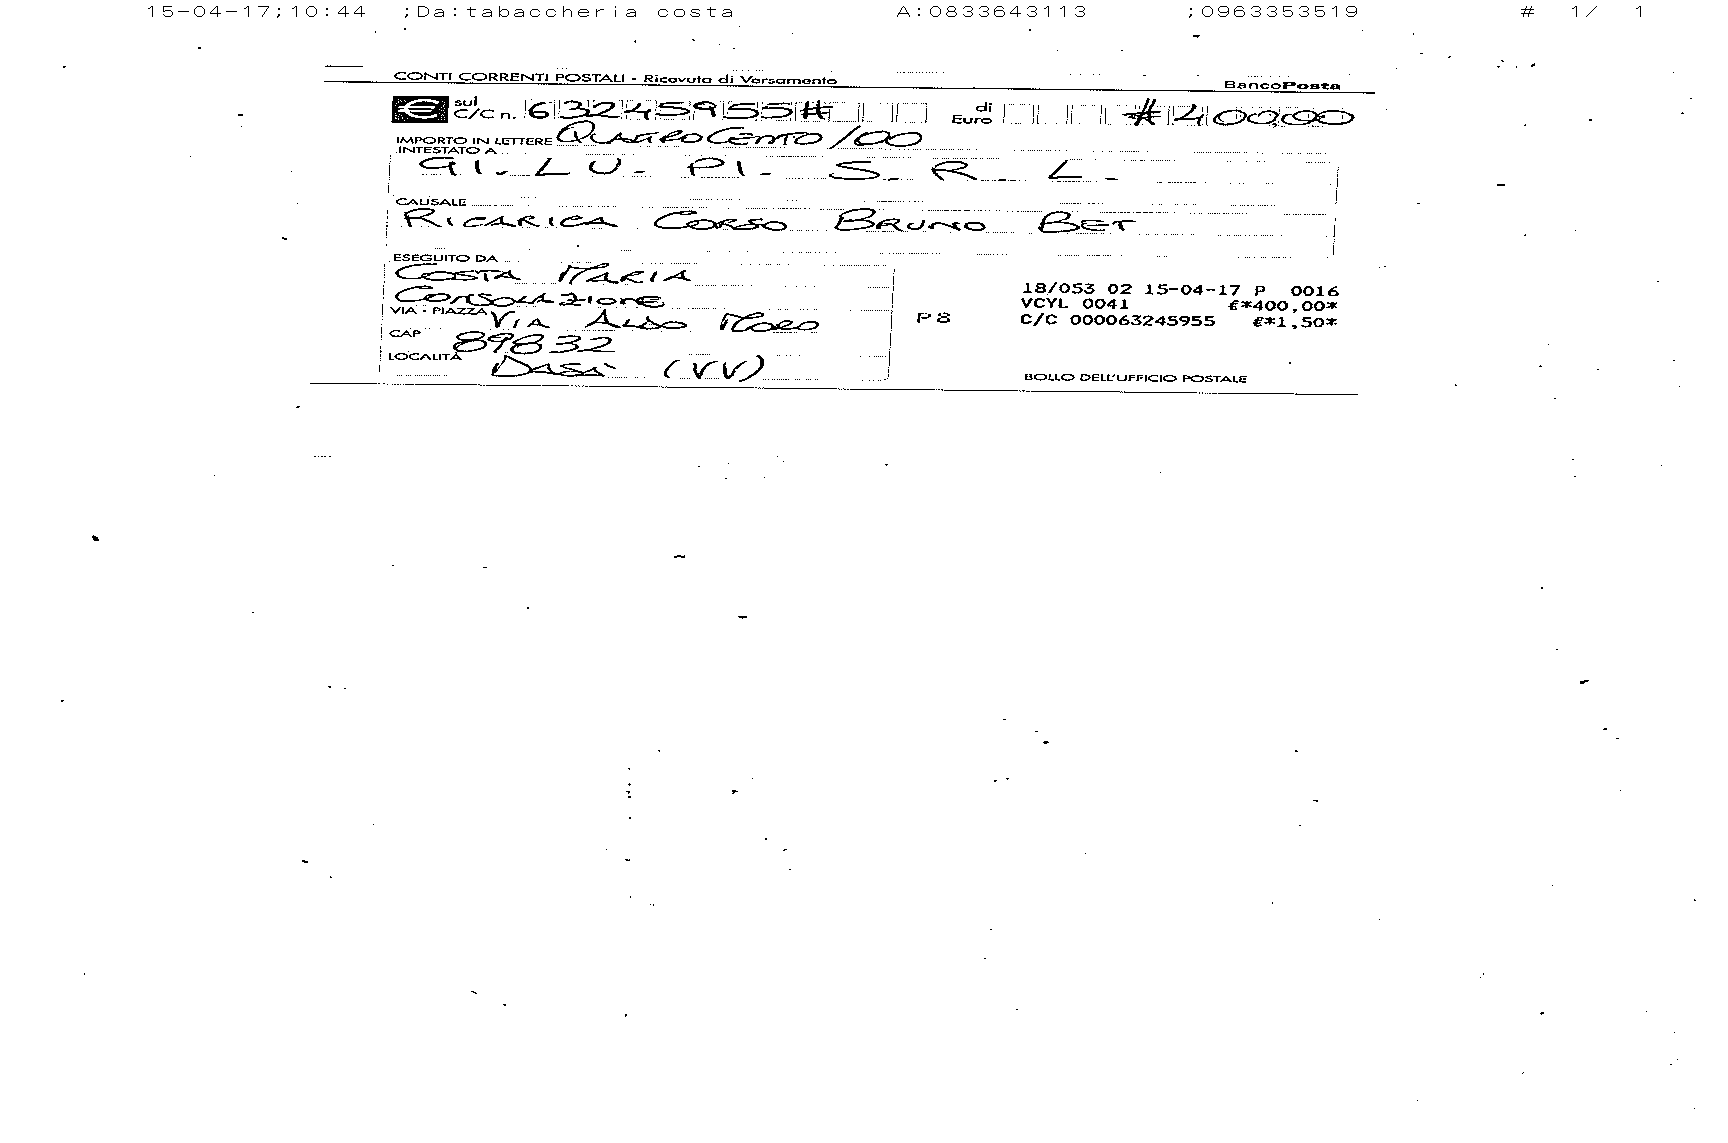 15-04-17;10:44 ;Da:tabaccheria costa A:0833643113 ;0963353519 # 1/ 1
CONTI CORRENTI POSTALI - Ricevuta di Versamento BancoPosta
€ sul C/C n. 63245955# di Euro #400,00
IMPORTO IN LETTERE QUATTROCENTO/00
INTESTATO A
GI. LU. PI. S. R. L.
CAUSALE
RICARICA CORSO BRUNO BET
ESEGUITO DA
COSTA MARIA
CONSOLAZIONE
VIA - PIAZZA VIA ALDO MORO
CAP 89832
LOCALITÀ DASA' (VV)
P8
18/053 02 15-04-17 P 0016
VCYL 0041 €*400,00*
C/C 000063245955 €*1,50*
BOLLO DELL'UFFICIO POSTALE